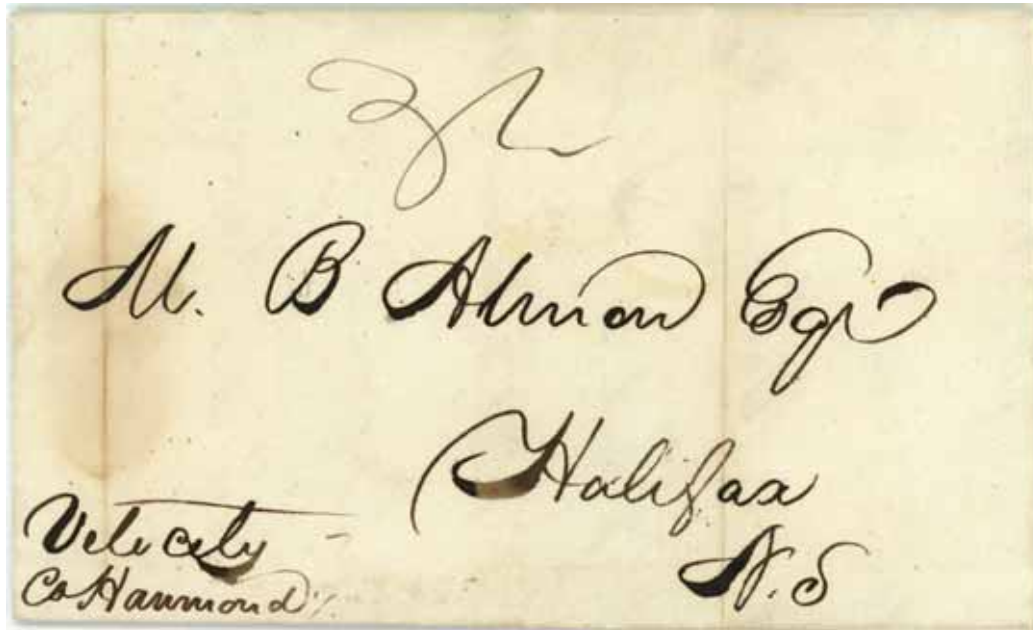 M. B Almon Esqr
Halifax
N. S
Velocity
Hammond